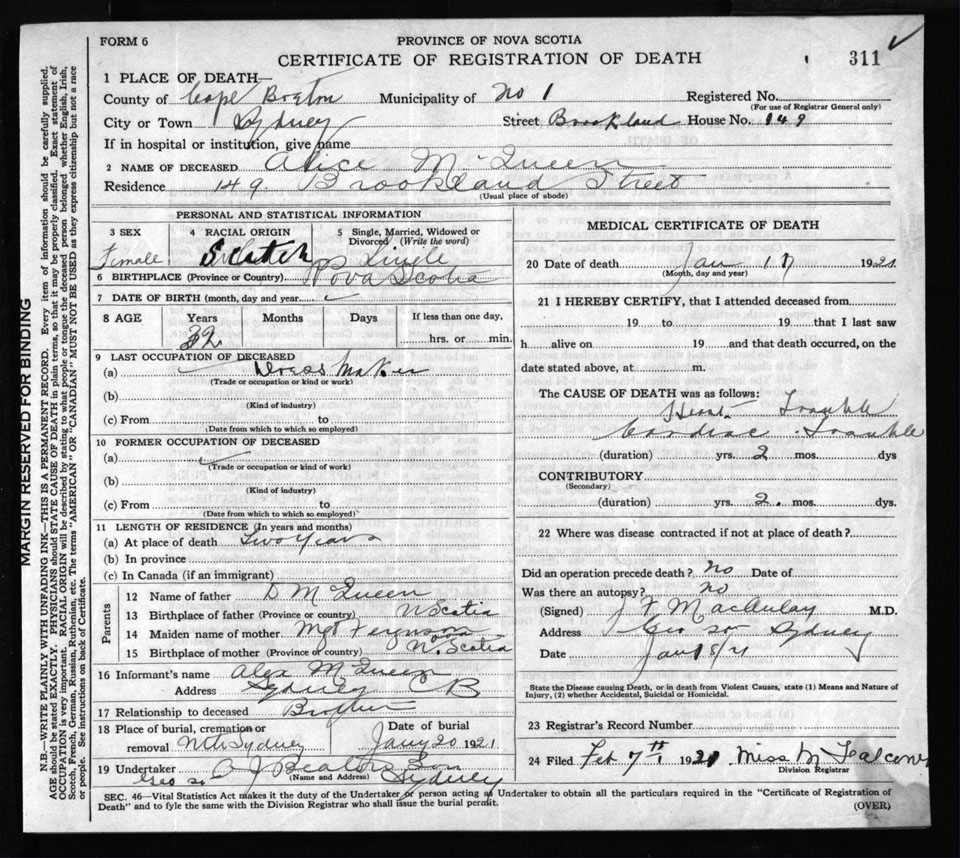 FORM 6
PROVINCE OF NOVA SCOTIA
CERTIFICATE OF REGISTRATION OF DEATH
311
1 PLACE OF DEATH—
County of Cape Breton Municipality of No 1 Registered No.
(For use of Registrar General only)
City or Town Sydney Street Brookland House No. 149
If in hospital or institution, give name
2 NAME OF DECEASED Alice McQueen
Residence 149 Brookland Street
(Usual place of abode)
PERSONAL AND STATISTICAL INFORMATION
3 SEX Female
4 RACIAL ORIGIN Scotch
5 Single, Married, Widowed or Divorced (Write the word) Single
6 BIRTHPLACE (Province or Country) Nova Scotia
7 DATE OF BIRTH (month, day and year)
8 AGE Years Months Days If less than one day,
32 hrs. or min.
9 LAST OCCUPATION OF DECEASED
(a) Dress Maker
(Trade or occupation or kind of work)
(b)
(Kind of industry)
(c) From to
(Date from which to which so employed)
10 FORMER OCCUPATION OF DECEASED
(a)
(Trade or occupation or kind of work)
(b)
(Kind of industry)
(c) From to
(Date from which to which so employed)
11 LENGTH OF RESIDENCE (In years and months)
(a) At place of death Two Years
(b) In province
(c) In Canada (if an immigrant)
Parents
12 Name of father D McQueen
13 Birthplace of father (Province or country) N Scotia
14 Maiden name of mother Mgt Ferguson
15 Birthplace of mother (Province or country) Nova Scotia
16 Informant's name Alex McQueen
Address Sydney C B
17 Relationship to deceased Brother
18 Place of burial, cremation or removal Nth Sydney
Date of burial Jany 20 1921
19 Undertaker A J Beaton & Son
(Name and Address)
Geo St Sydney
MEDICAL CERTIFICATE OF DEATH
20 Date of death Jan 17 1921
(Month, day and year)
21 I HEREBY CERTIFY, that I attended deceased from
19 to 19 that I last saw
h alive on 19 and that death occurred, on the
date stated above, at m.
The CAUSE OF DEATH was as follows:
Heart Trouble
Cardiac Trouble
(duration) yrs. 2 mos. dys
CONTRIBUTORY
(Secondary)
(duration) yrs. 2. mos. dys.
22 Where was disease contracted if not at place of death?
Did an operation precede death? No Date of
Was there an autopsy? no
(Signed) J F MacAulay M.D.
Address Geo St Sydney
Date Jan 18/21
State the Disease causing Death, or in death from Violent Causes, state (1) Means and Nature of
Injury, (2) whether Accidental, Suicidal or Homicidal.
23 Registrar's Record Number
24 Filed Feb 7th 1921 Miss M
Division Registrar
SEC. 46—Vital Statistics Act makes it the duty of the Undertaker or person acting as Undertaker to obtain all the particulars required in the "Certificate of Registration of
Death" and to fyle the same with the Division Registrar who shall issue the burial permit.
(OVER)
MARGIN RESERVED FOR BINDING
N.B.—WRITE PLAINLY WITH UNFADING INK—THIS IS A PERMANENT RECORD. Every item of information should be carefully supplied.
AGE should be stated EXACTLY. PHYSICIANS should STATE CAUSE OF DEATH in plain terms, so that it may be properly classified. Exact statement of
OCCUPATION is very important. RACIAL ORIGIN will be described by stating to what people or tongue the deceased person belonged whether English, Irish,
Scotch, French, German, Russian, Ruthenian, etc. The terms "AMERICAN" OR "CANADIAN" MUST NOT BE USED as they express citizenship but not a race
or people. See instructions on back of Certificate.